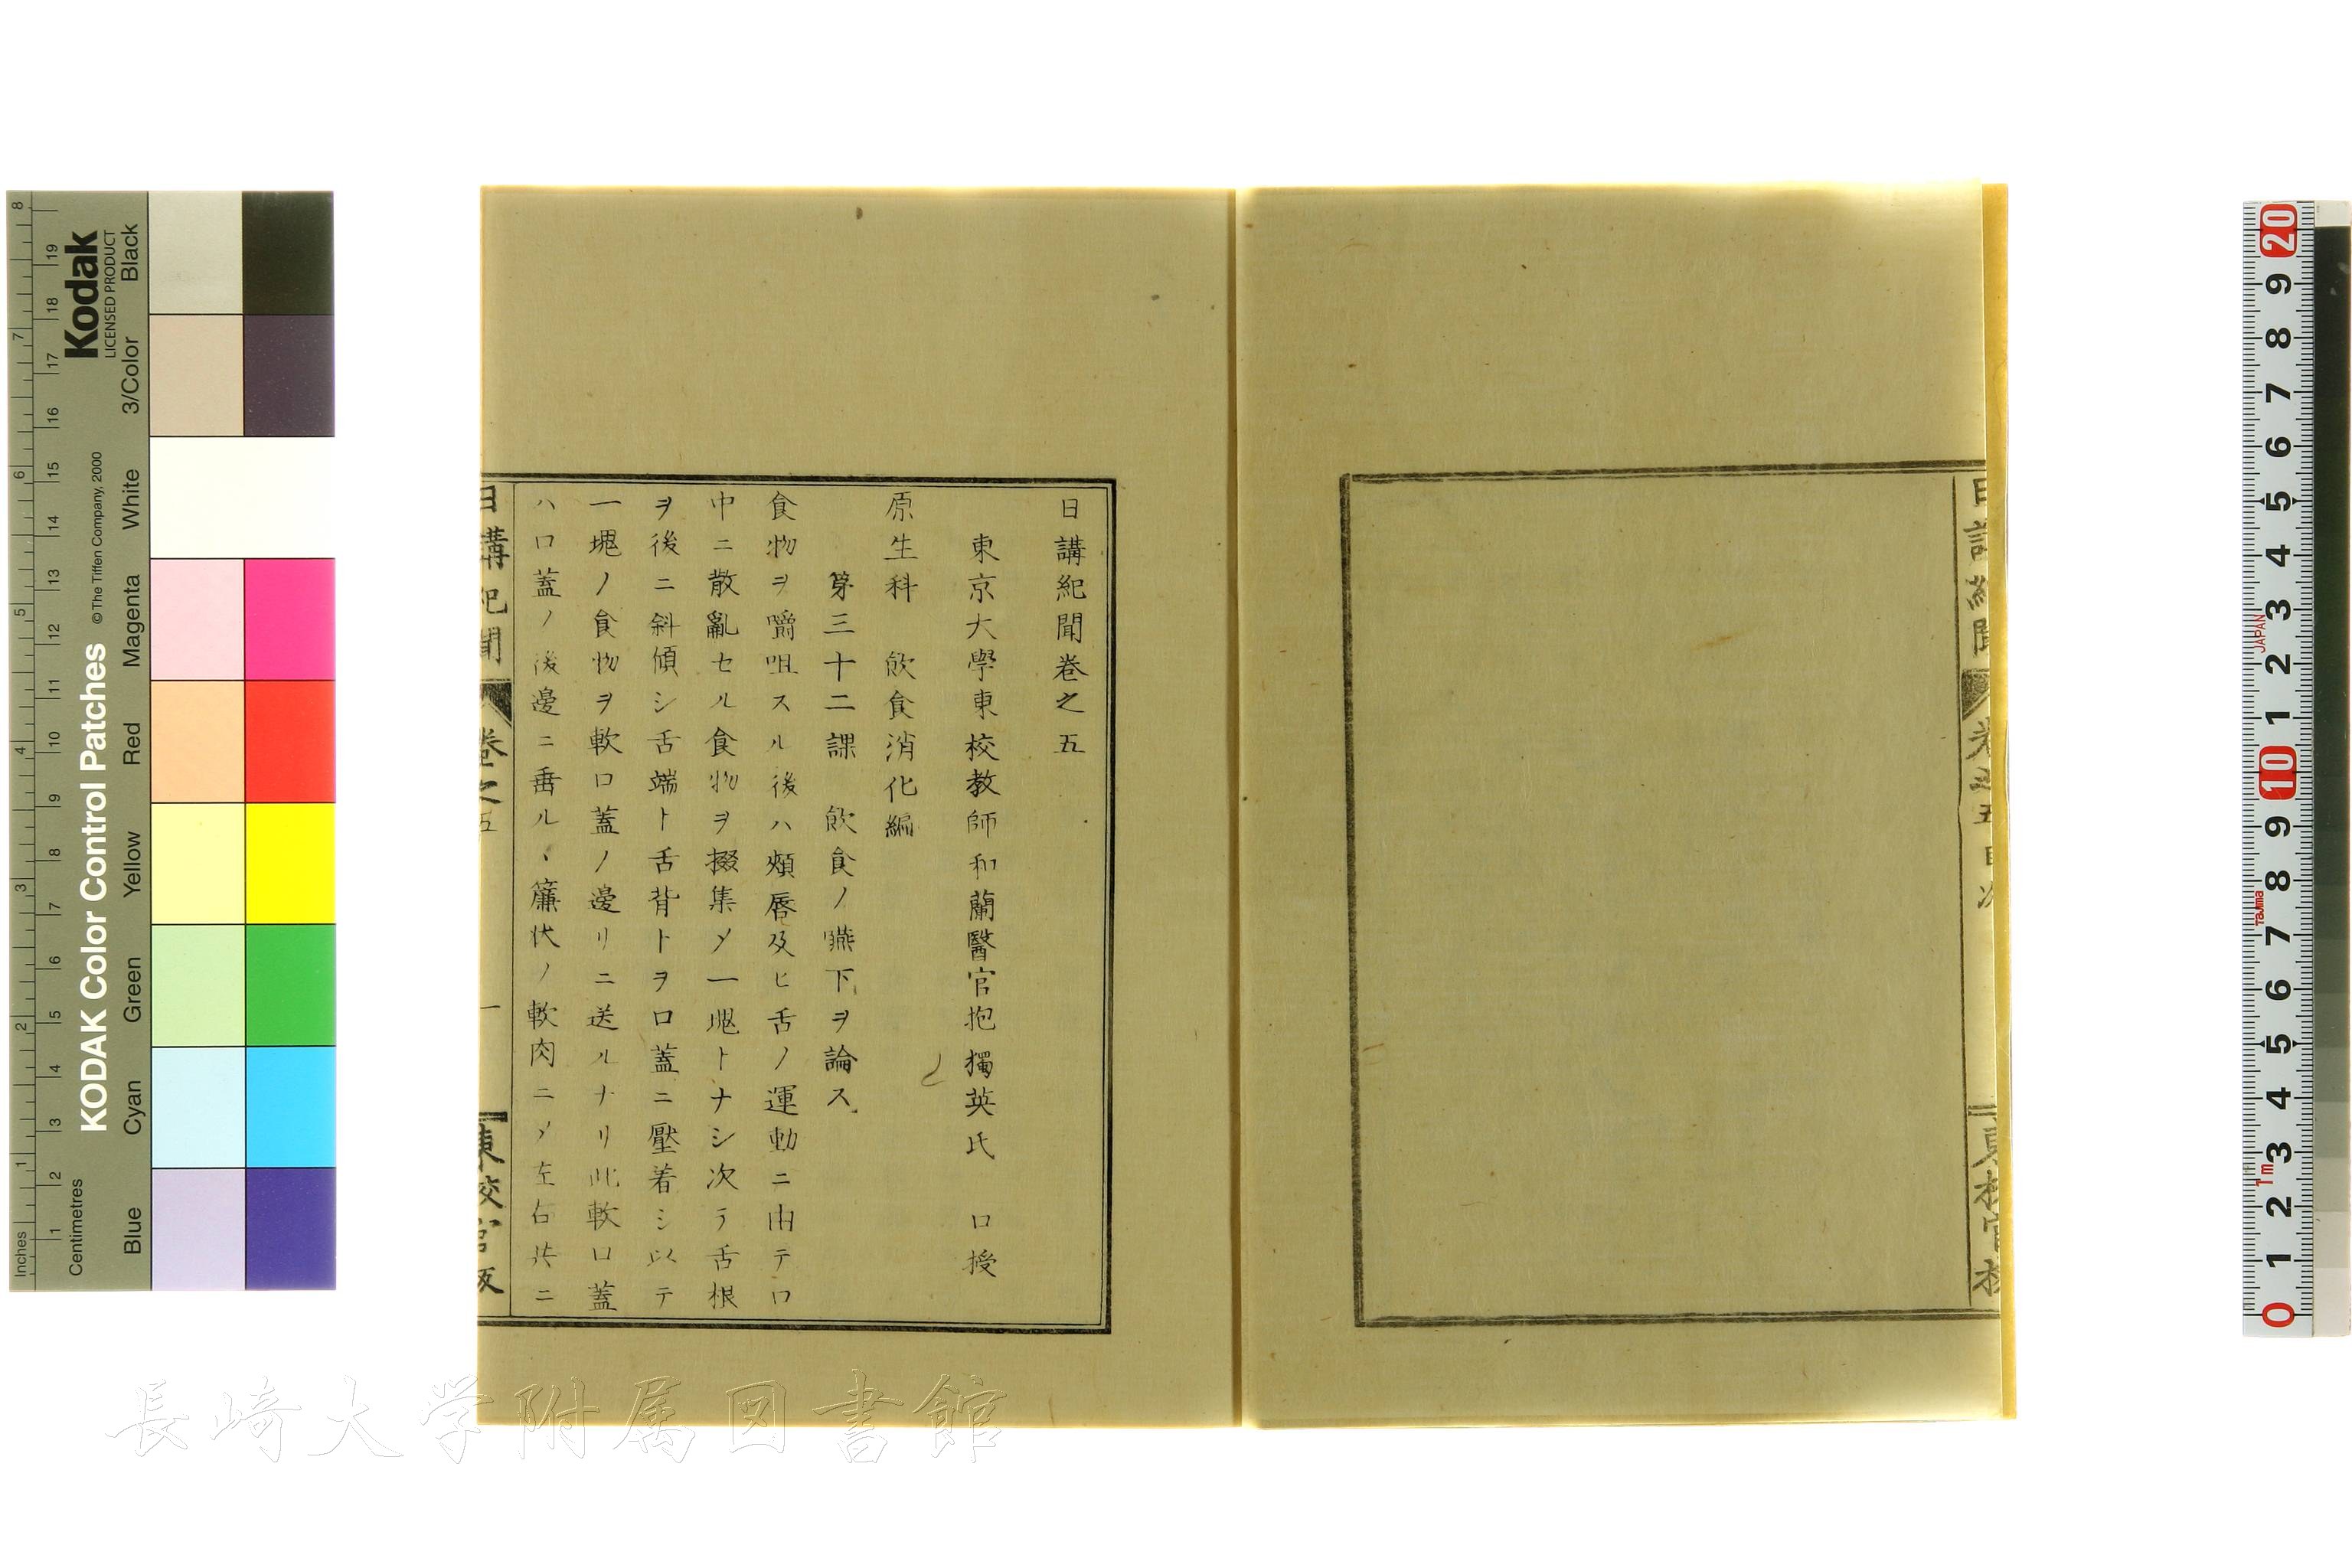 日講紀聞巻之五
東京大學東校教師和蘭醫官抱獨英氏　口授
原生科　飮食消化編
第三十二課　飮食ノ嚥下ヲ論ス
食物ヲ嚼咀スル後ハ頰唇及ヒ舌ノ運動ニ由テ口
中ニ散亂セル食物ヲ掇集メ一塊トナシ次テ舌根
ヲ後ニ斜傾シ舌端ト舌背トヲ口蓋ニ壓着シ以テ
一塊ノ食物ヲ軟口蓋ノ邊リニ送ルナリ此軟口蓋
ハ口蓋ノ後邊ニ垂ル、簾状ノ軟肉ニメ左右共ニ
日講紀聞　巻之五　一　東校官版
巻之五目次
長崎大学附属図書館
Kodak
LICENSED PRODUCT
KODAK Color Control Patches
© The Tiffen Company, 2000
Blue Cyan Green Yellow Red Magenta White 3/Color Black
Inches 1 2 3 4 5 6 7 8
Centimetres 1 2 3 4 5 6 7 8 9 10 11 12 13 14 15 16 17 18 19
20 9 8 7 6 5 4 3 2 1 10 9 8 7 6 5 4 3 2 1 0
JAPAN
Tajima
1m